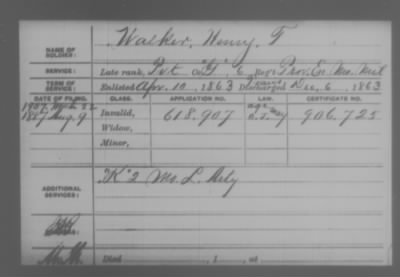 NAME OF SOLDIER: Walker, Henry, F
SERVICE: Late rank, Pvt Co "G", 6 Reg't Prov. En. Mo. Mil
TERM OF SERVICE: Enlisted Apr. 10, 1863 Discharged Dec, 6, 1863
DATE OF FILING. CLASS. APPLICATION NO. LAW. CERTIFICATE NO.
1907 22 age
1887 Aug. 9 Invalid, 618,907 906,725
Widow,
Minor,
ADDITIONAL SERVICES: "K" 2 Mo. L. Arty
Died , 1 , at